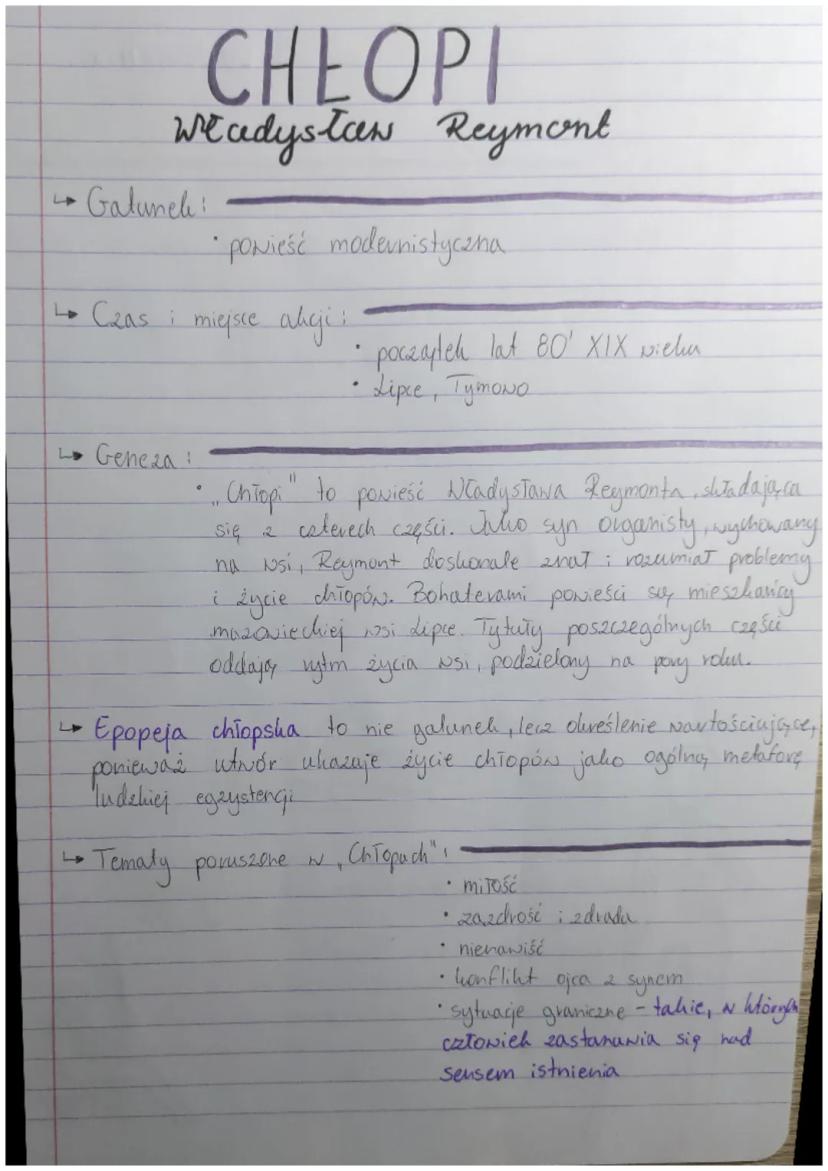 CHŁOPI
Władysław Reymont
↳ Gatunek:
• powieść modernistyczna
↳ Czas i miejsce akcji:
• początek lat 80' XIX wieku
• Lipce, Tymowo
↳ Geneza:
• „Chłopi" to powieść Władysława Reymonta, składająca
się z czterech części. Jako syn organisty, wychowany
na wsi, Reymont doskonale znał i rozumiał problemy
i życie chłopów. Bohaterami powieści są mieszkańcy
mazowieckiej wsi Lipce. Tytuły poszczególnych części
oddają rytm życia wsi, podzielony na pory roku.
↳ Epopeja chłopska to nie gatunek, lecz określenie wartościujące,
ponieważ utwór ukazuje życie chłopów jako ogólną metaforę
ludzkiej egzystencji
↳ Tematy poruszone w „Chłopach":
• miłość
• zazdrość i zdrada
• nienawiść
• konflikt ojca z synem
• sytuacje graniczne - takie, w których
człowiek zastanawia się nad
sensem istnienia